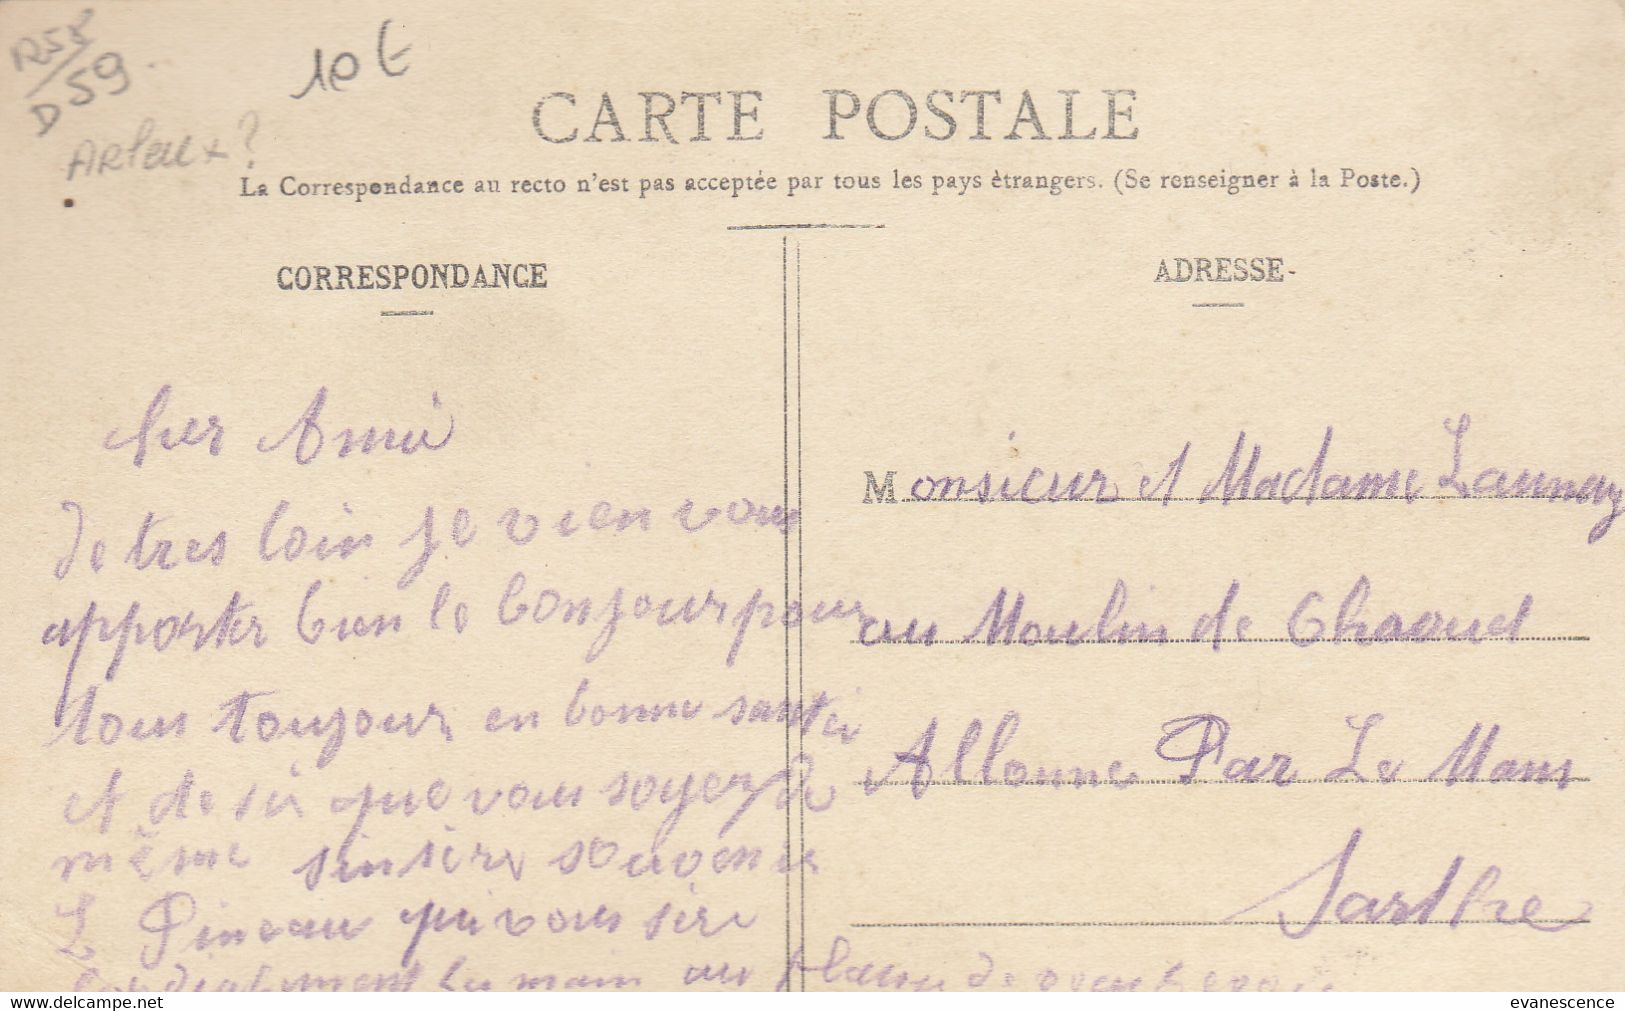 R58/
D59
10 €
Arleux ?
CARTE POSTALE
La Correspondance au recto n'est pas acceptée par tous les pays ètrangers. (Se renseigner à la Poste.)
CORRESPONDANCE
ADRESSE-
Cher Ami
De tres loin je vien vous
apporter bien le bonjour pour
tous toujour en bonne santer
et desir que vous soyer de
même sinsere souvenir
L Pineau qui vous sere
Cordialement la main au
Monsieur et Madame Launay
au Moulin de Chaouel
Allonne Par Le Mans
Sarthe
http://www.delcampe.net
evanescence